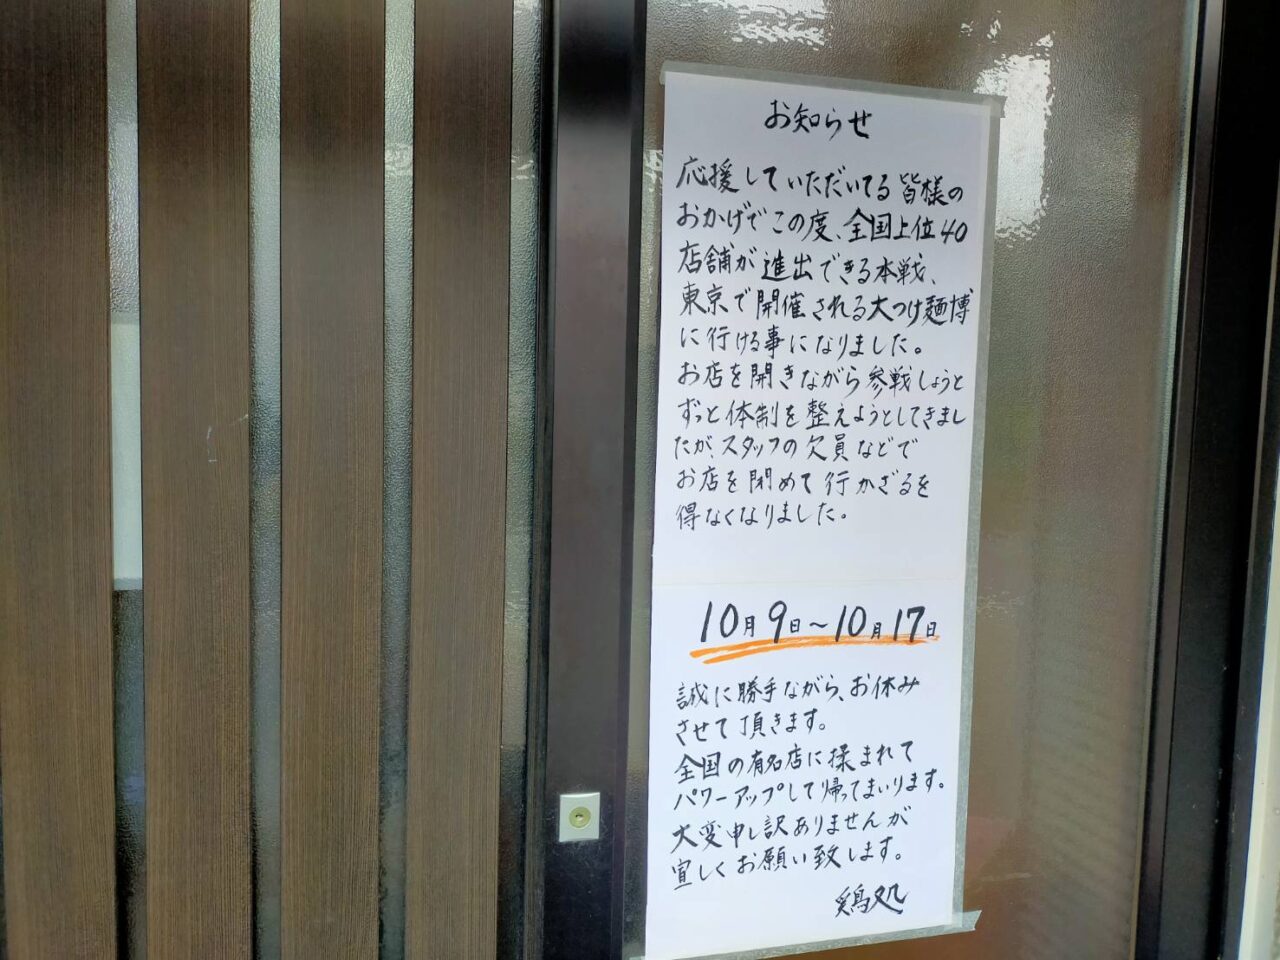 お知らせ
応援していただいてる皆様の
おかげでこの度、全国上位40
店舗が進出できる本戦、
東京で開催される大つけ麺博
に行ける事になりました。
お店を開きながら参戦しようと
ずっと体制を整えようとしてきまし
たが、スタッフの欠員などで
お店を閉めて行かざるを
得なくなりました。
10月9日～10月17日
誠に勝手ながら、お休み
させて頂きます。
全国の有名店に揉まれて
パワーアップして帰ってまいります。
大変申し訳ありませんが
宜しくお願い致します。
鶏処